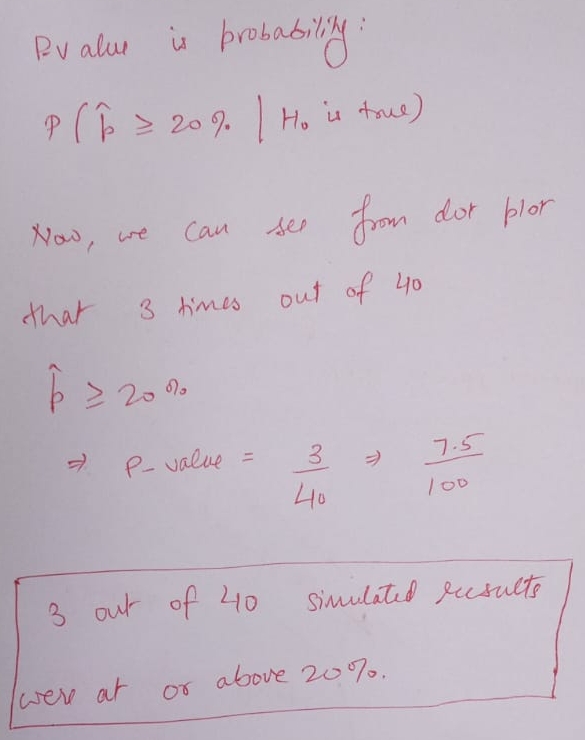 P-value is probability:
P(p̂ ≥ 20% | H₀ is true)
Now, we can see from dot plot
that 3 times out of 40
p̂ ≥ 20%
⇒ P-value = 3/40 ⇒ 7.5/100
3 out of 40 simulated results
were at or above 20%.